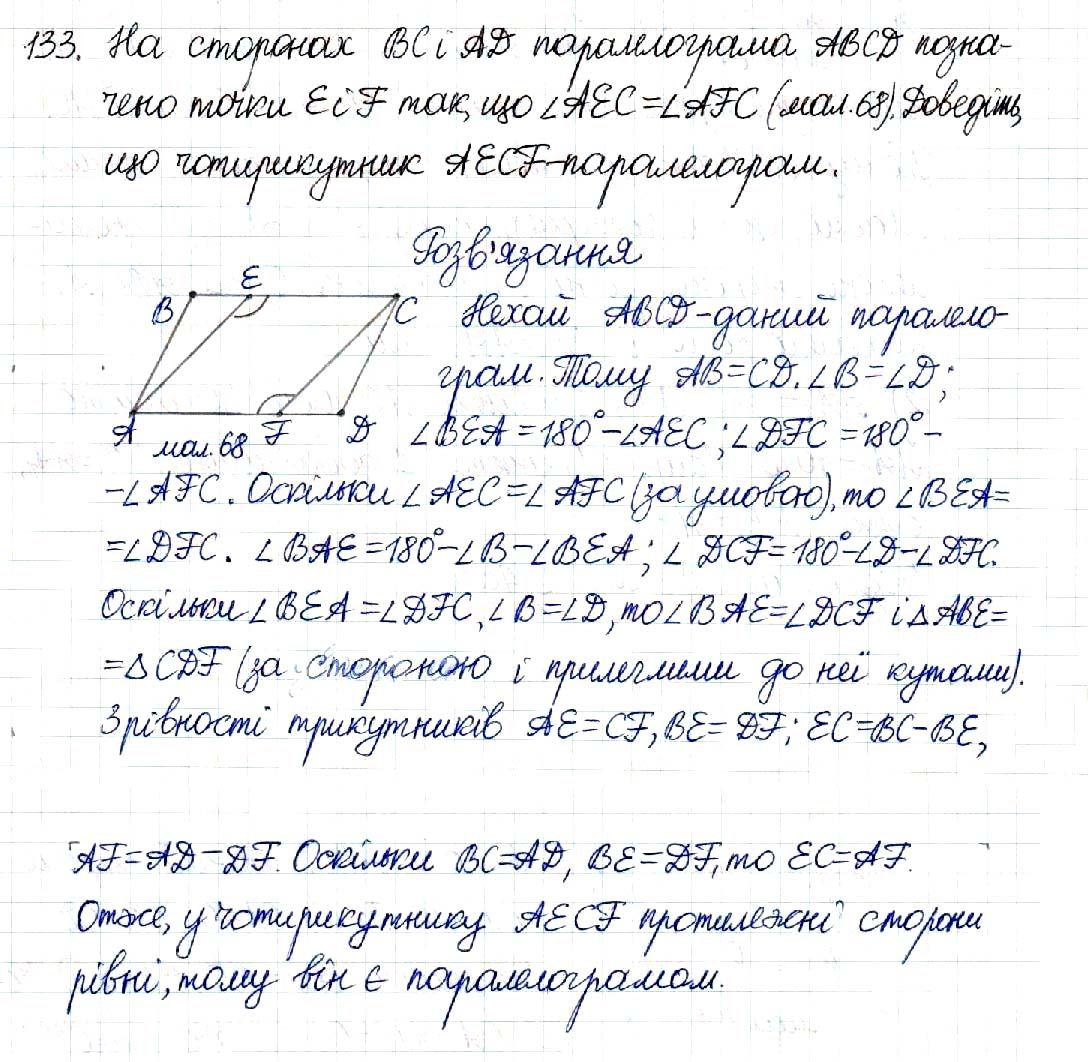 133. На сторонах BC і AD паралелограма ABCD позна-
чено точки E і F так, що ∠AEC=∠AFC (мал.68). Доведіть,
що чотирикутник AECF-паралелограм.
Розв'язання
E
B
C
A
F
D
мал.68
Нехай ABCD-даний парале­ло-
грам. Тому AB=CD. ∠B=∠D;
∠BEA=180°-∠AEC; ∠DFC=180°-
-∠AFC. Оскільки ∠AEC=∠AFC (за умовою), то ∠BEA=
=∠DFC. ∠BAE=180°-∠B-∠BEA; ∠DCF=180°-∠D-∠DFC.
Оскільки ∠BEA=∠DFC, ∠B=∠D, то ∠BAE=∠DCF і △ABE=
=△CDF (за стороною і прилеглими до неї кутами).
З рівності трикутників AE=CF, BE=DF; EC=BC-BE,
AF=AD-DF. Оскільки BC=AD, BE=DF, то EC=AF.
Отже, у чотирикутнику AECF протилежні сторони
рівні, тому він є паралелограмом.